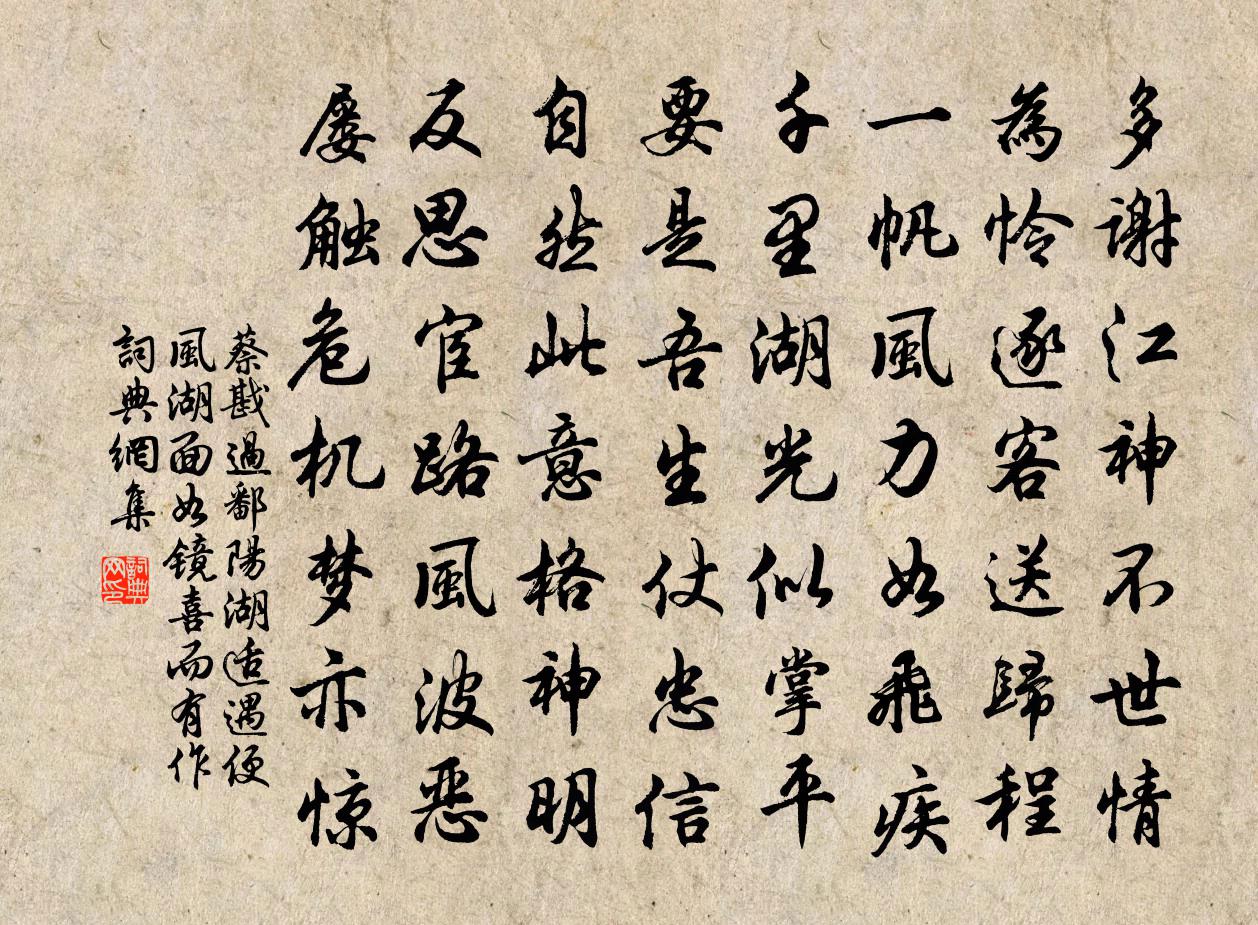 多謝江神不世情
為憐逐客送歸程
一帆風力如飛疾
千里湖光似掌平
要是吾生仗忠信
自然此意格神明
反思宦路風波惡
屡触危机梦亦惊
蔡戡過鄱陽湖适遇便
風湖面如镜喜而有作
詞典網集
詞典
网印